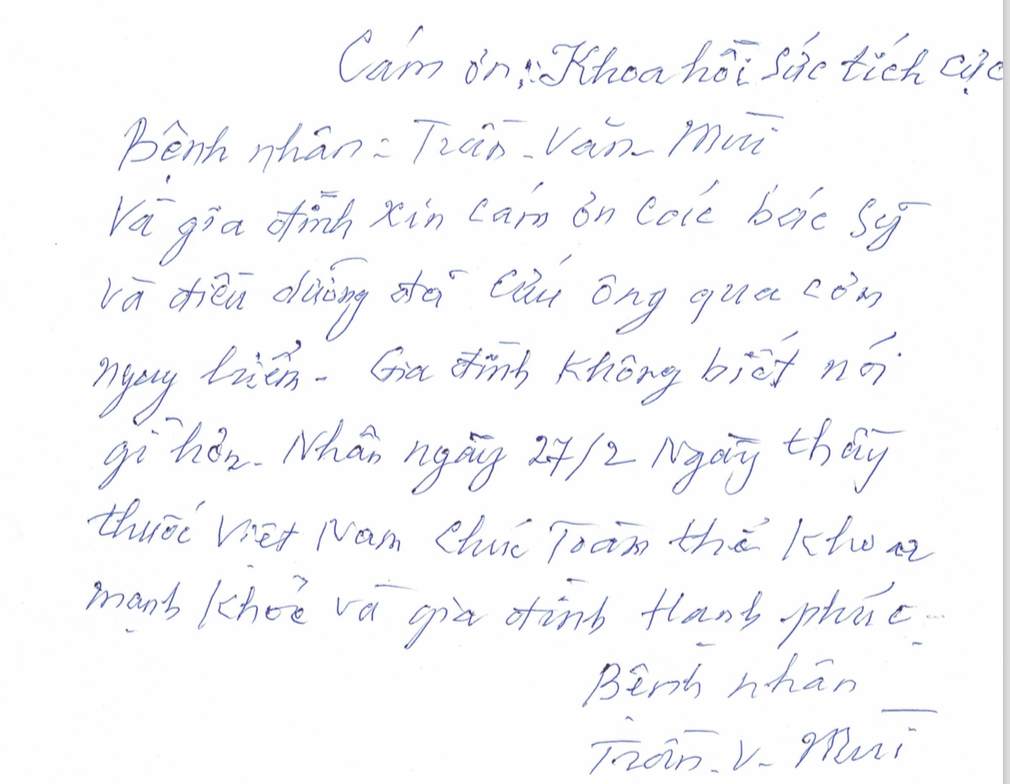 Cám ơn: Khoa hồi sức tích cực
Bệnh nhân = Trần - Văn - Mùi
Và gia đình xin cám ơn các bác sỹ
và điều dưỡng đã cứu ông qua cơn
nguy hiểm - Gia đình không biết nói
gì hơn. Nhân ngày 27/2 Ngày thầy
thuốc Việt Nam chúc Toàn thể khoa
mạnh khỏe và gia đình Hạnh phúc
Bệnh nhân
Trần - V - Mùi